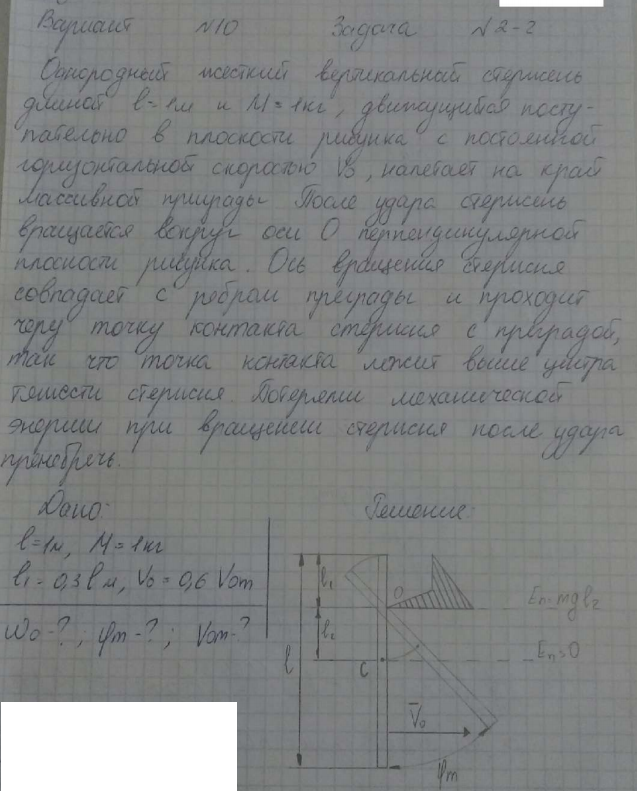 Вариант №10 Задача №2-2
Однородный жесткий вертикальный стержень
длиной l=1м и M=1кг, движущийся посту-
пательно в плоскости рисунка с постоянной
горизонтальной скоростью V₀, налетает на край
массивной преграды После удара стержень
вращается вокруг оси О перпендикулярной
плоскости рисунка. Ось вращения стержня
совпадает с ребром преграды и проходит
через точку контакта стержня с преградой,
так что точка контакта лежит выше центра
тяжести стержня Потерями механической
энергии при вращении стержня после удара
пренебречь.
Дано:
l=1м, M=1кг
l₁=0,3l м, V₀=0,6 V₀m
ω₀-?; φm-?; V₀m-?
Решение:
l₁
O
Eп=mgl₂
l₂
l
C
Eп=0
V̅₀
φm